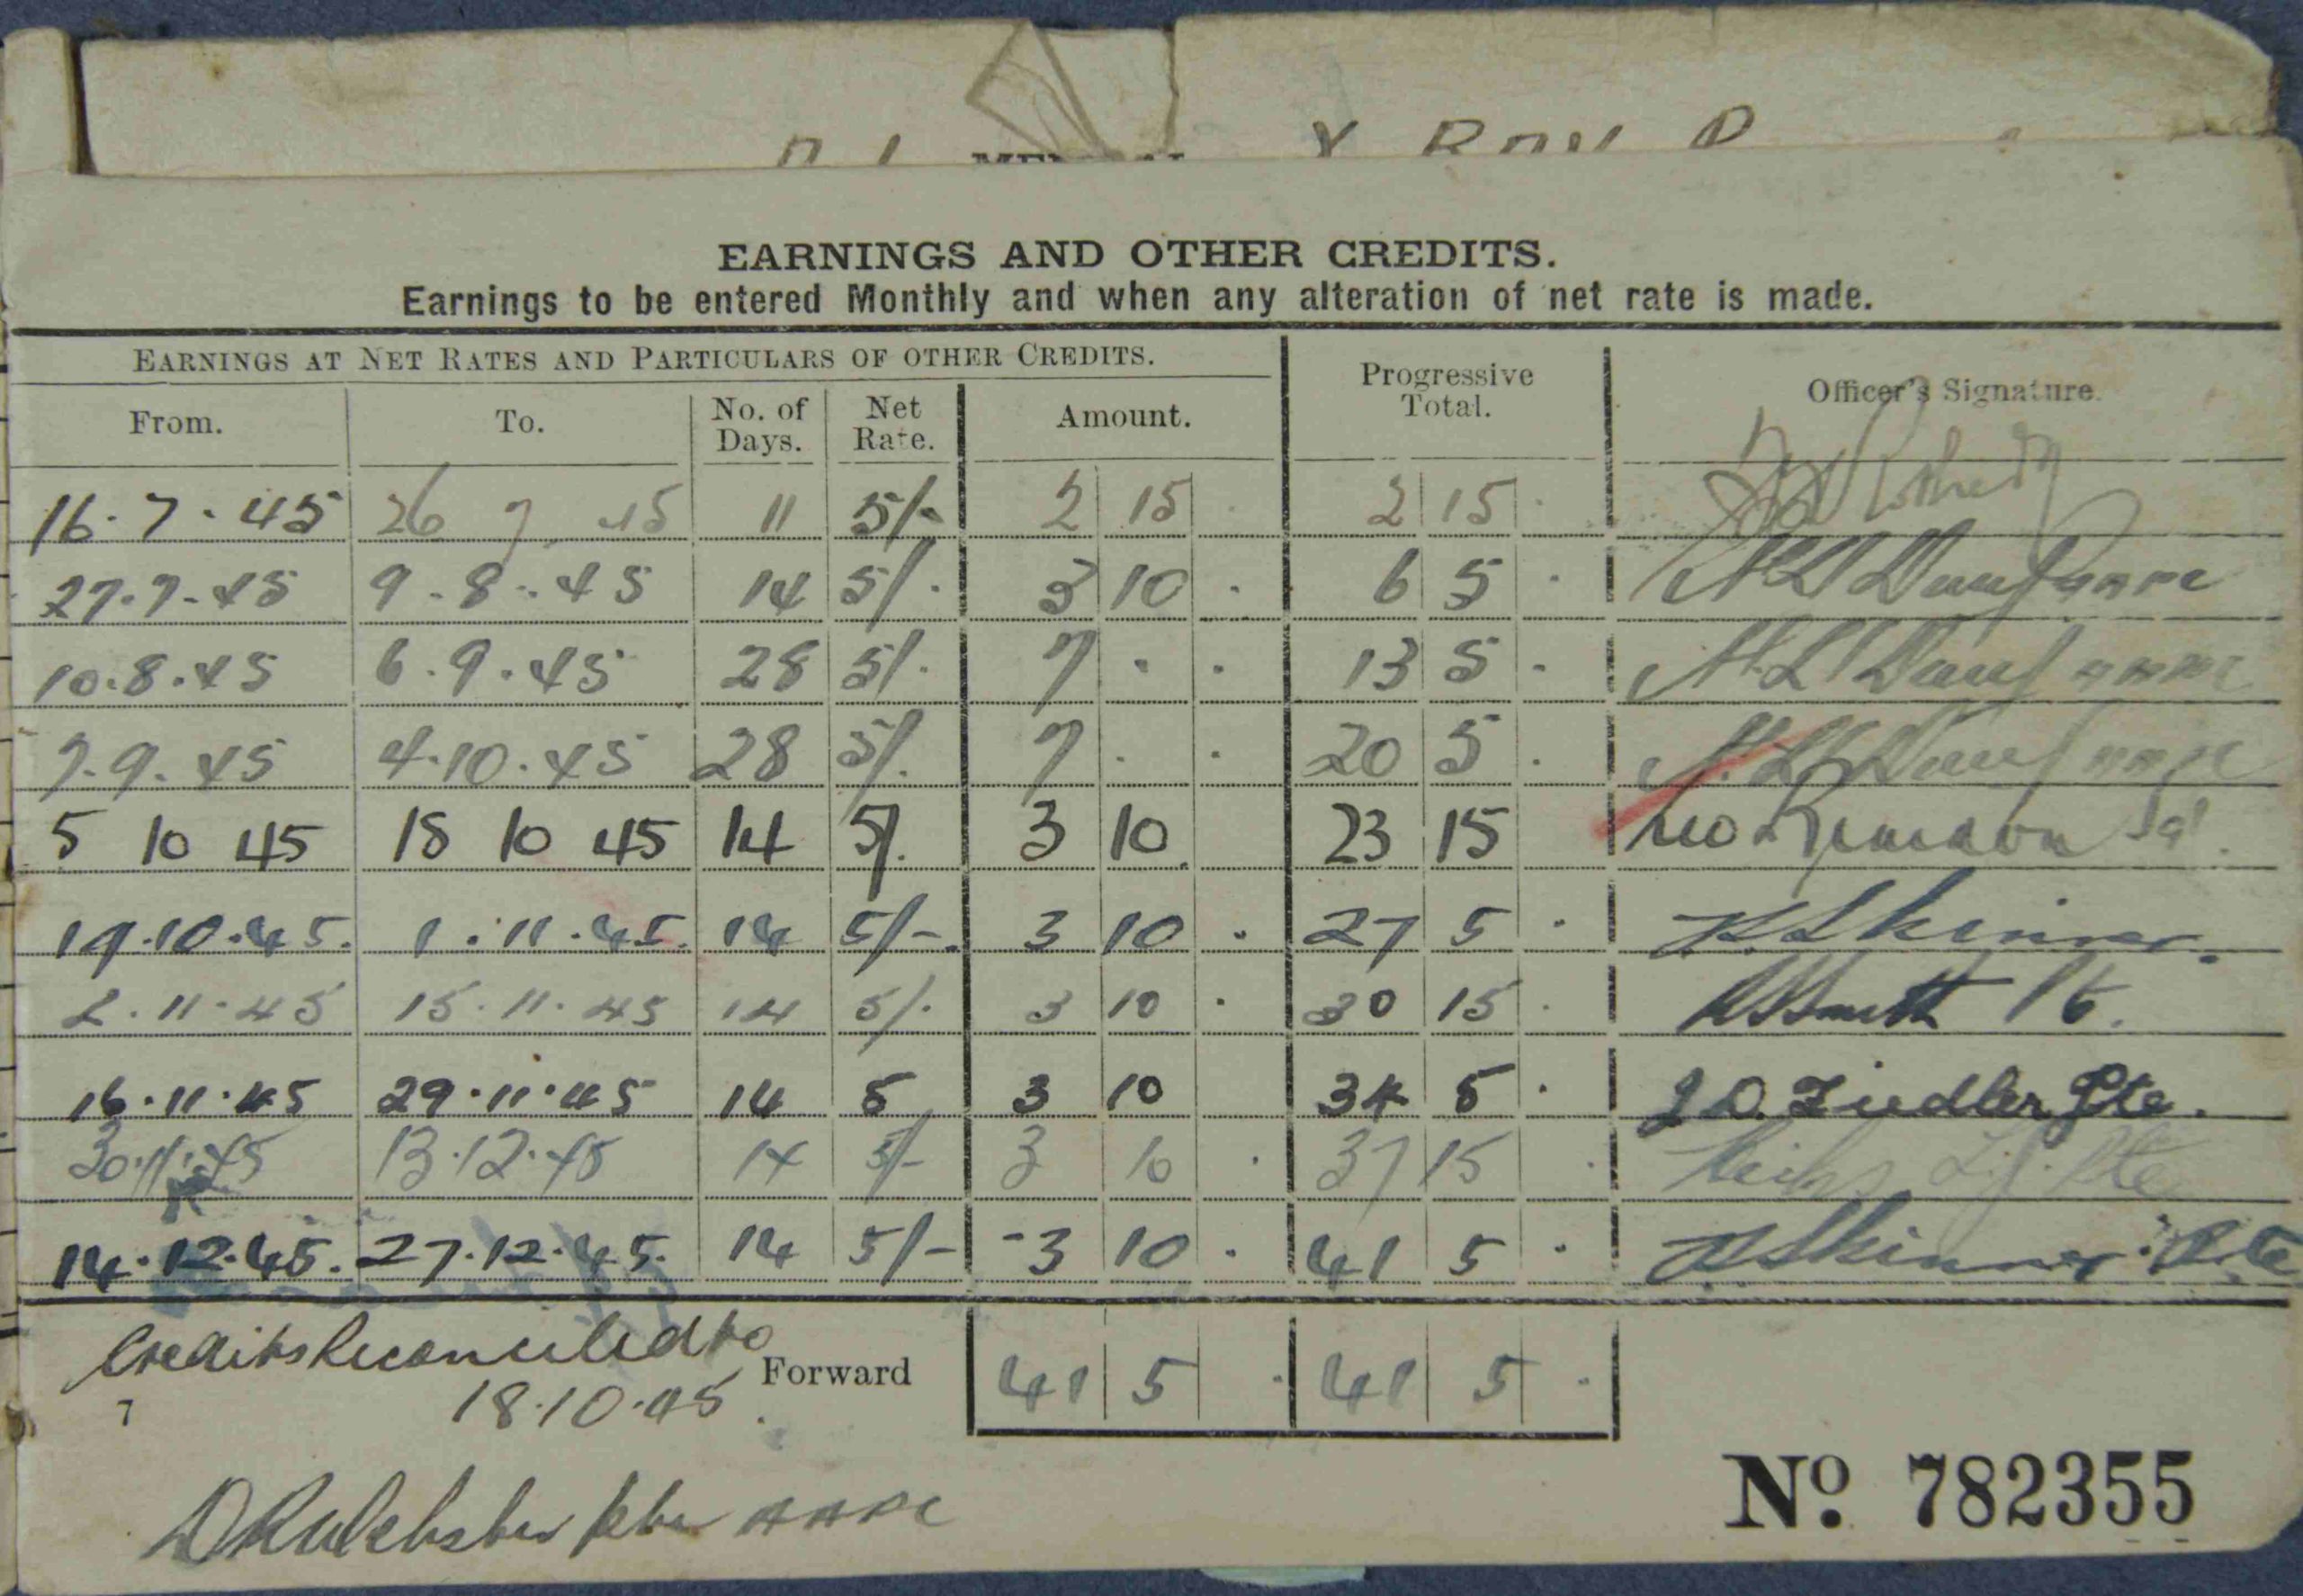 EARNINGS AND OTHER CREDITS.
Earnings to be entered Monthly and when any alteration of net rate is made.
EARNINGS AT NET RATES AND PARTICULARS OF OTHER CREDITS. Progressive Total. Officer's Signature.
From. To. No. of Days. Net Rate. Amount.
16.7.45 26 7 45 11 5/- 2 15 . 2 15 .
27.7.45 9.8.45 14 5/. 3 10 . 6 5 .
10.8.45 6.9.45 28 5/. 7 . . 13 5 .
7.9.45 4.10.45 28 5/. 7 . . 20 5 .
5 10 45 18 10 45 14 5/. 3 10. 23 15
19.10.45. 1.11.45. 14 5/-. 3 10 . 27 5 . K Skinner.
2.11.45 15.11.45 14 5/. 3 10 . 30 15 . Smith
16.11.45 29.11.45 14 5 3 10 34 5 . J D. Ziedler Pte.
30.11.45 13.12.45 14 5/- 3 10 . 37 15 . Pte
14.12.45. 27.12.45. 14 5/- 3 10 . 41 5 . K Skinner. Pte
Credits Reconciled to
Forward 41 5 . 41 5 .
7 18.10.45.
No. 782355
D R Webster